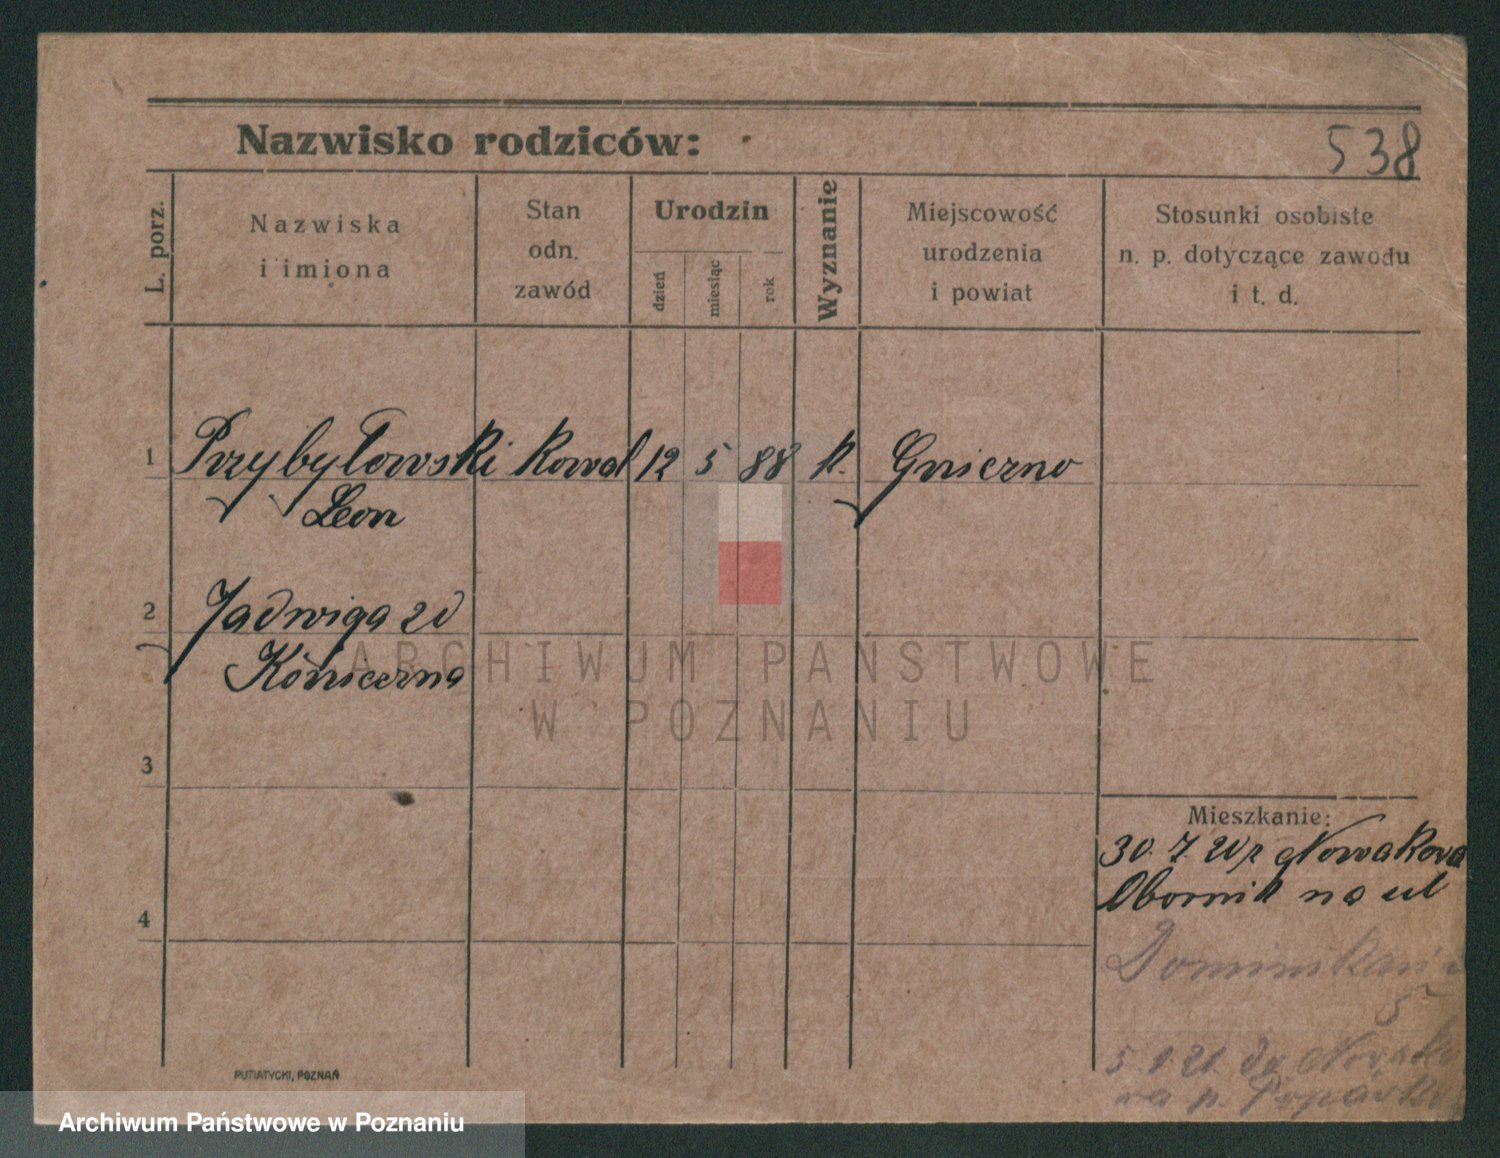 Nazwisko rodziców:
538
L. porz.
Nazwiska
i imiona
Stan
odn.
zawód
Urodzin
dzień
miesiąc
rok
Wyznanie
Miejscowość
urodzenia
i powiat
Stosunki osobiste
n. p. dotyczące zawodu
i t. d.
1 Przybyłowski Kowal 12 5 88 k. Gniezno
Leon
2 Jadwiga zd
3
4
Mieszkanie:
30. 7. 20 z Nowakowa
Obornik na ul
5
5. 1. 21. do
PUTIATYCKI, POZNAŃ
ARCHIWUM PAŃSTWOWE
W POZNANIU
Archiwum Państwowe w Poznaniu